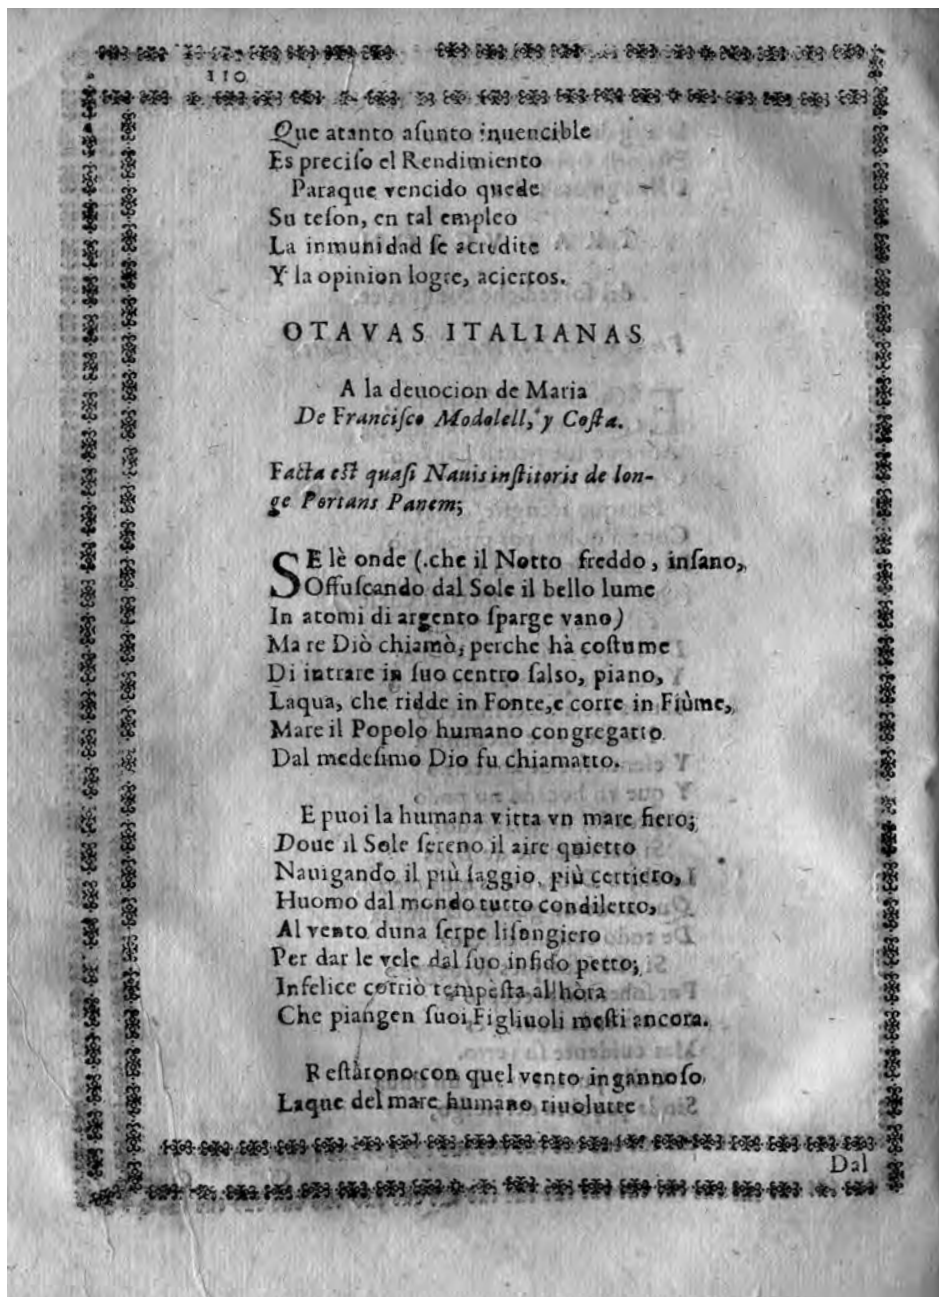 110
Que atanto aſunto inuencible
Es preciſo el Rendimiento
Paraque vencido quede
Su teſon, en tal empleo
La inmunidad ſe acredite
Y la opinion logre, aciertos.
OTAVAS ITALIANAS
A la deuocion de Maria
De Franciſco Modolell, y Coſta.
Facta eſt quaſi Nauis inſtitoris de lon-
ge Portans Panem;
SE lè onde (.che il Notto freddo, inſano,
Offuſcando dal Sole il bello lume
In atomi di argento ſparge vano)
Ma re Diò chiamò, perche hà coſtume
Di intrare in ſuo centro ſalso, piano,
Laqua, che ridde in Fonte,e corre in Fiùme,
Mare il Popolo humano congregatto
Dal medeſimo Dio fu chiamatto.
E puoi la humana vitta vn mare fiero;
Doue il Sole ſereno il aire quietto
Nauigando il più ſaggio, più certiero,
Huomo dal mondo tutto condiletto,
Al vento duna ſerpe liſongiero
Per dar le vele dal ſuo infido petto;
Infelice corriò tempèſta al'hòra
Che piangen ſuoi Figliuoli meſti ancora.
Reſtàrono con quel vento ingannoſo
Laque del mare humano riuolutte
Dal